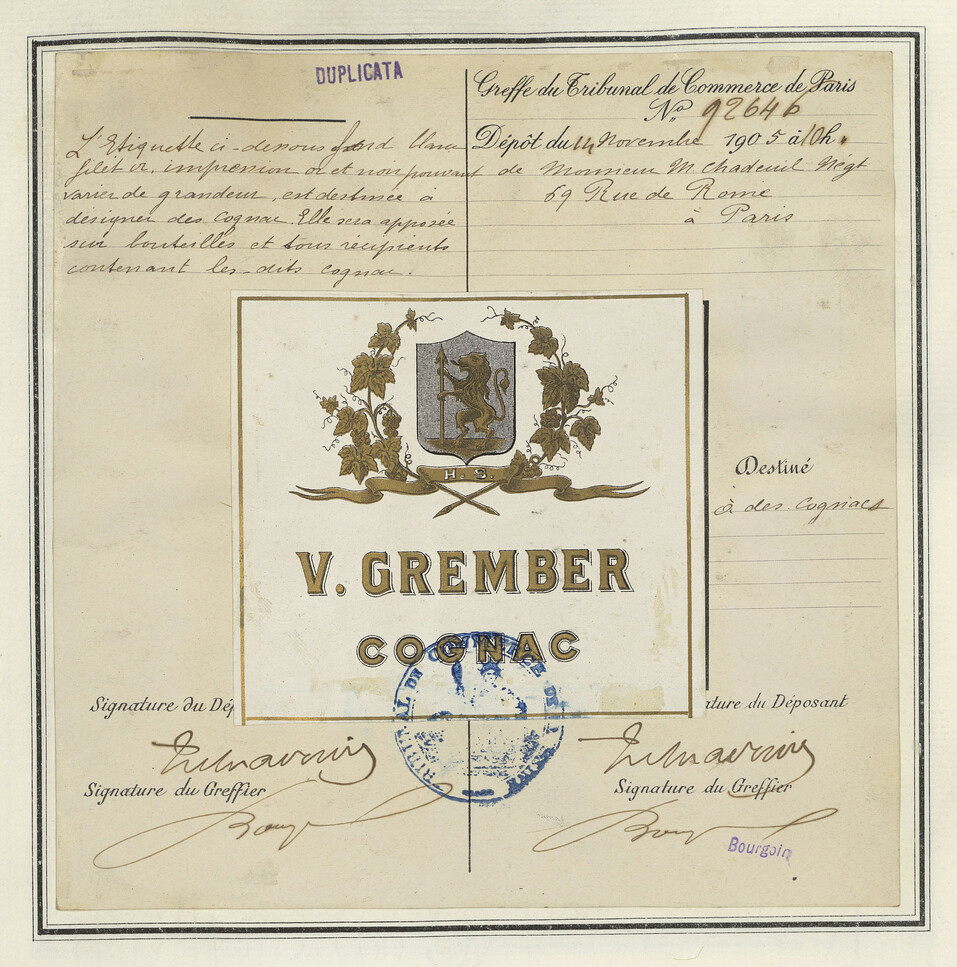 DUPLICATA
L'Etiquette ci-dessous fond blanc
filet or, impression or et noir pouvant
varier de grandeur, est destinée à
désigner des Cognac. Elle sera apposée
sur bouteilles et tous récipients
contenant les-dits Cognac.
Greffe du Tribunal de Commerce de Paris
No 92646
Dépôt du 14 Novembre 1905 à 10h
de Monsieur M. Chadeuil Négt
69 Rue de Rome
à Paris
H. S.
V. GREMBER
COGNAC
Destiné
à des Cognacs
TRIBUNAL DE COMMERCE DE LA SEINE
Signature du Dé
ature du Déposant
Signature du Greffier
Signature du Greffier
Bourgoin